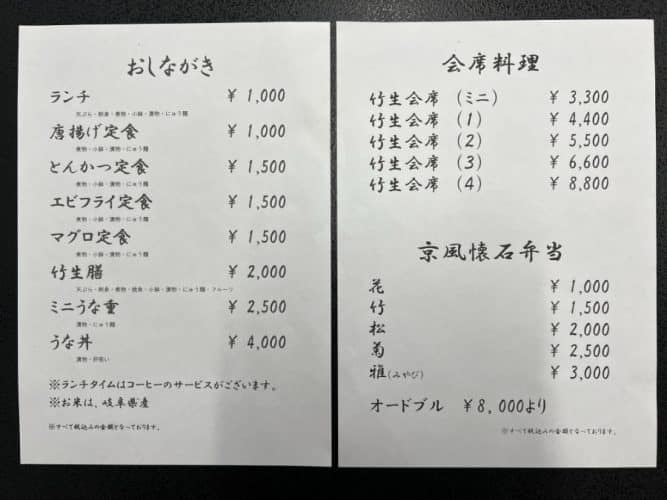 おしながき
ランチ ¥ 1,000
天ぷら・刺身・煮物・小鉢・漬物・にゅう麺
唐揚げ定食 ¥ 1,000
煮物・小鉢・漬物・にゅう麺
とんかつ定食 ¥ 1,500
煮物・小鉢・漬物・にゅう麺
エビフライ定食 ¥ 1,500
煮物・小鉢・漬物・にゅう麺
マグロ定食 ¥ 1,500
煮物・小鉢・漬物・にゅう麺
竹生膳 ¥ 2,000
天ぷら・刺身・煮物・焼魚・小鉢・漬物・にゅう麺・フルーツ
ミニうな重 ¥ 2,500
漬物・にゅう麺
うな丼 ¥ 4,000
漬物・肝吸い
※ランチタイムはコーヒーのサービスがございます。
※お米は、岐阜県産
※すべて税込みの金額となっております。
会席料理
竹生会席 (ミニ) ¥ 3,300
竹生会席 (1) ¥ 4,400
竹生会席 (2) ¥ 5,500
竹生会席 (3) ¥ 6,600
竹生会席 (4) ¥ 8,800
京風懐石弁当
花 ¥ 1,000
竹 ¥ 1,500
松 ¥ 2,000
菊 ¥ 2,500
雅(みやび) ¥ 3,000
オードブル ¥8,000より
※すべて税込みの金額となっております。